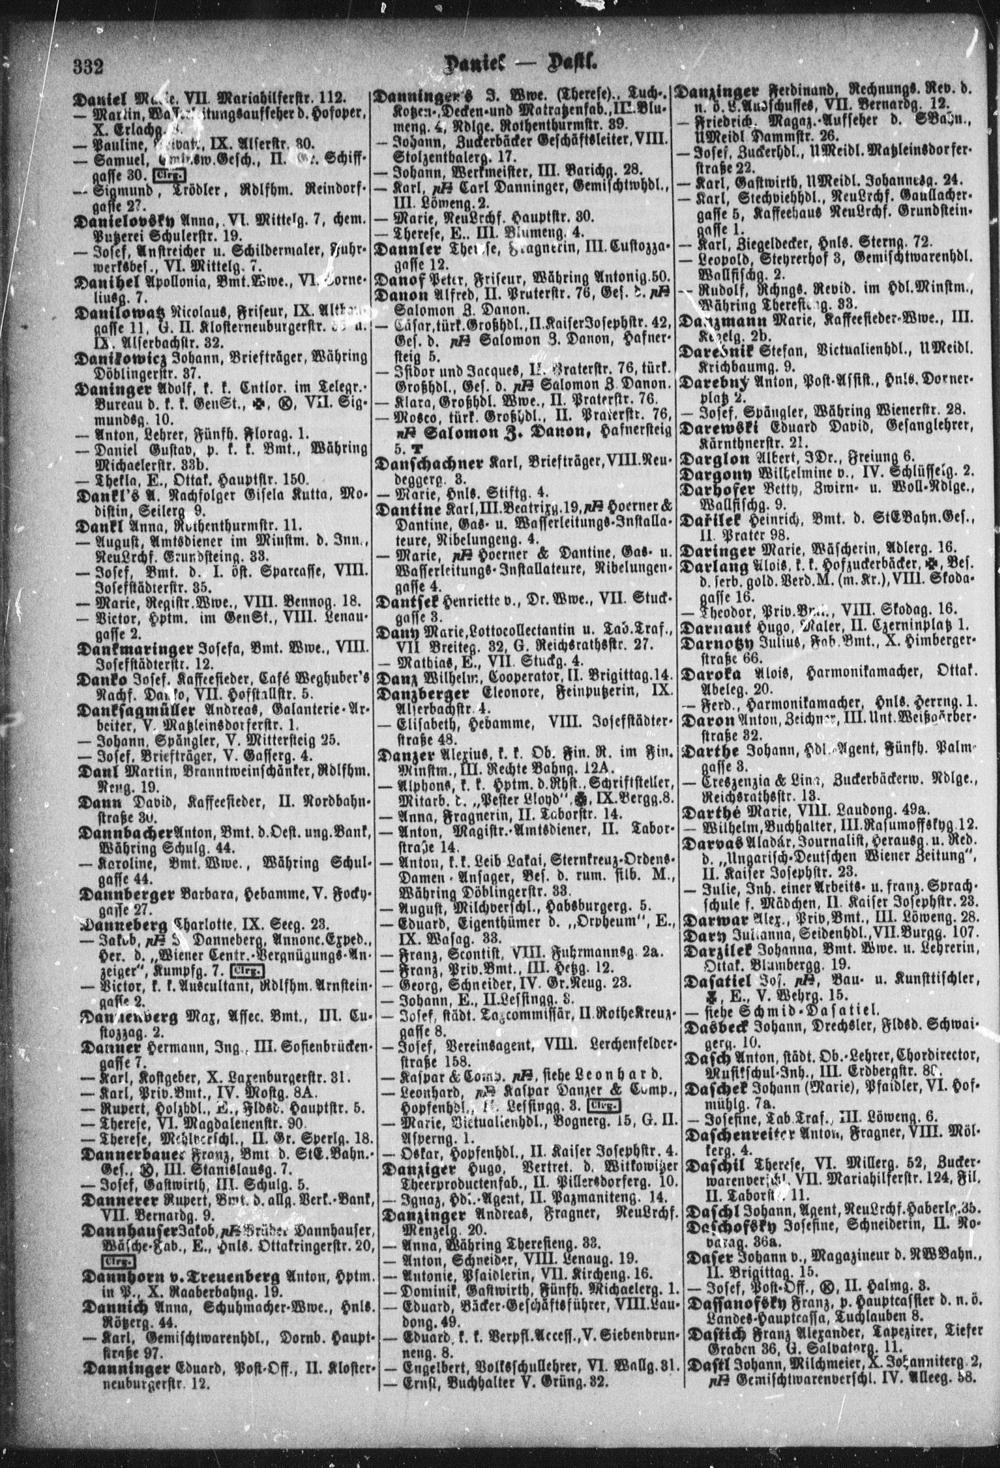 332
Daniel — Dastl.
Daniel VII. Mariahilferstr. 112.
— Martin, Wasserleitungsaufseher d. Hofoper,
X. Erlachg.
— Pauline, Privat., IX. Alserstr. 30.
— Samuel, Gesch., II. Gr. Schiff-
gasse 30. Clrg.
— Sigmund, Trödler, Rdlfhm. Reindorf-
gasse 27.
Danielovsky Anna, VI. Mittelg. 7, chem.
Putzerei Schulerstr. 19.
— Josef, Anstreicher u. Schildermaler, Fuhr-
werksbes., VI. Mittelg. 7.
Danihel Apollonia, Bmt.Wwe., VI. Corne-
liusg. 7.
Danilowatz Nicolaus, Friseur, IX. Althan-
gasse 11, G. II. Klosterneuburgerstr. u.
IX. Alserbachstr. 32.
Danikowicz Johann, Briefträger, Währing
Döblingerstr. 37.
Daninger Adolf, k. k. Cntlor. im Telegr.-
Bureau d. k. k. GenSt., VII. Sig-
mundsg. 10.
— Anton, Lehrer, Fünfh. Florag. 1.
— Daniel Gustav, p. k. k. Bmt., Währing
Michaelerstr. 33b.
— Thekla, E., Ottak. Hauptstr. 150.
Dankl's A. Nachfolger Gisela Kutta, Mo-
distin, Seilerg 9.
Dankl Anna, Rothenthurmstr. 11.
— August, Amtsdiener im Minstm. d. Inn.,
NeuLrchf. Grundsteing. 33.
— Josef, Bmt. d. I. öst. Sparcasse, VIII.
Josefstädterstr. 35.
— Marie, Registr.Wwe., VIII. Bennog. 18.
— Victor, Hptm. im GenSt., VIII. Lenau-
gasse 2.
Dankmaringer Josefa, Bmt. Wwe., VIII.
Josefstädterstr. 12.
Danko Josef, Kaffeesieder, Café Weghuber's
Nachf. Danko, VII. Hofstallstr. 5.
Danksagmüller Andreas, Galanterie-Ar-
beiter, V. Matzleinsdorferstr. 1.
— Johann, Spängler, V. Mittersteig 25.
— Josef, Briefträger, V. Gasserg. 4.
Danl Martin, Branntweinschänker, Rdlfhm.
Reng. 19.
Dann David, Kaffeesieder, II. Nordbahn-
straße 30.
Dannbacher Anton, Bmt. d. Oest. ung. Bank,
Währing Schulg. 44.
— Karoline, Bmt. Wwe., Währing Schul-
gasse 44.
Dannberger Barbara, Hebamme, V. Focky-
gasse 27.
Danneberg Charlotte, IX. Seeg. 23.
— Jakob, J. Danneberg, Annonc.Exped.,
Her. d. „Wiener Centr.-Vergnügungs-An-
zeiger“, Kumpfg. 7. Clrg.
— Victor, k. k. Auscultant, Rdlfhm. Arnstein-
gasse 2.
Dannenberg Max, Assec. Bmt., III. Cu-
stozzag. 2.
Danner Hermann, Ing., III. Sofienbrücken-
gasse 7.
— Karl, Kostgeber, X. Laxenburgerstr. 31.
— Karl, Priv.Bmt., IV. Mostg. 8A.
— Rupert, Holzhdl., E., Fldsd. Hauptstr. 5.
— Therese, VI. Magdalenenstr. 90.
— Therese, Mehlverschl., II. Gr. Sperlg. 18.
Dannerbauer Franz, Bmt d. StE.Bahn.-
Ges., III. Stanislausg. 7.
— Josef, Gastwirth, III. Schulg. 5.
Dannerer Rupert, Bmt. d. allg. Verk.-Bank,
VII. Bernardg. 9.
Dannhauser Jakob, Brüder Dannhauser,
Wäsche-Fab., E., Hnls. Ottakringerstr. 20,
Clrg.
Dannhorn v. Treuenberg Anton, Hptm.
in P., X. Raaberbahng. 19.
Dannich Anna, Schuhmacher-Wwe., Hnls.
Rötzerg. 44.
— Karl, Gemischtwarenhdl., Dornb. Haupt-
straße 97.
Danninger Eduard, Post-Off., II. Kloster-
neuburgerstr. 12.
Danninger's J. Wwe. (Therese)., Tuch-,
Kotzen-, Decken- und Matratzenfab., III. Blu-
meng. 4, Ndlge. Rothenthurmstr. 39.
— Johann, Zuckerbäcker Geschäftsleiter, VIII.
Stolzenthalerg. 17.
— Johann, Werkmeister, III. Barichg. 28.
— Karl, Carl Danninger, Gemischtwhdl.,
III. Löweng. 2.
— Marie, NeuLrchf. Hauptstr. 30.
— Therese, E., III. Blumeng. 4.
Dannler Therese, Fragnerin, III. Custozza-
gasse 12.
Danof Peter, Friseur, Währing Antonig.50.
Danon Alfred, II. Praterstr. 76, Ges. d.
Salomon J. Danon.
— Cäsar, türk. Großhdl., II. KaiserJosephstr. 42,
Ges. d. Salomon J. Danon, Hafner-
steig 5.
— Isidor und Jacques, II. Praterstr. 76, türk.
Großhdl., Ges. d. Salomon J. Danon.
— Klara, Großhdl. Wwe., II. Praterstr. 76.
— Mosco, türk. Großhdl., II. Praterstr. 76,
Salomon J. Danon, Hafnersteig
5.
Danschachner Karl, Briefträger, VIII. Neu-
deggerg. 3.
— Marie, Hnls. Stiftg. 4.
Dantine Karl, III. Beatrixg. 19, Hoerner &
Dantine, Gas- u. Wasserleitungs-Installa-
teure, Nibelungeng. 4.
— Marie, Hoerner & Dantine, Gas- u.
Wasserleitungs-Installateure, Nibelungen-
gasse 4.
Dantsek Henriette v., Dr. Wwe., VII. Stuck-
gasse 3.
Dany Marie, Lottocollectantin u. Tab.Traf.,
VII Breiteg. 32, G. Reichsrathsstr. 27.
— Mathias, E., VII. Stuckg. 4.
Danz Wilhelm, Cooperator, II. Brigittag.14.
Danzberger Eleonore, Feinputzerin, IX.
Alserbachstr. 4.
— Elisabeth, Hebamme, VIII. Josefstädter-
straße 48.
Danzer Alexius, k. k. Ob. Fin. R. im Fin.
Minstm., III. Rechte Bahng. 12A.
— Alphons, k. k. Hptm. d. Rhst., Schriftsteller,
Mitarb. d. „Pester Lloyd“, IX. Bergg. 8.
— Anna, Fragnerin, II. Taborstr. 14.
— Anton, Magistr.-Amtsdiener, II. Tabor-
straße 14.
— Anton, k. k. Leib Lakai, Sternkreuz-Ordens-
Damen-Ansager, Bes. d. rum. silb. M.,
Währing Döblingerstr. 33.
— August, Milchverschl., Habsburgerg. 5.
— Eduard, Eigenthümer d. „Orpheum“, E.,
IX. Wasag. 33.
— Franz, Scontist, VIII. Fuhrmannsg. 2a.
— Franz, Priv.Bmt., III. Hetzg. 12.
— Georg, Schneider, IV. Gr.Neug. 23.
— Johann, E., II. Lessingg. 3.
— Josef, städt. Taxcommissär, II. RotheKreuz-
gasse 8.
— Josef, Vereinsagent, VIII. Lerchenfelder-
straße 158.
— Kaspar & Comp. siehe Leonhard.
— Leonhard, Kaspar Danzer & Comp.,
Hopfenhdl., II. Lessingg. 3. Clrg.
— Marie, Victualienhdl., Bognerg. 15, G. II.
Asperng. 1.
— Oskar, Hopfenhdl., II. Kaiser Josephstr. 4.
Danziger Hugo, Vertret. d. Witkowitzer
Theerproductenfab., II. Pillersdorferg. 10.
— Ignaz, Hdl.-Agent, II. Pazmaniteng. 14.
Danzinger Andreas, Fragner, NeuLrchf.
Menzelg. 20.
— Anna, Währing Theresieng. 33.
— Anton, Schneider, VIII. Lenaug. 19.
— Antonie, Pfaidlerin, VII. Kircheng. 16.
— Dominik, Gastwirth, Fünfh. Michaelerg. 1.
— Eduard, Bäcker-Geschäftsführer, VIII. Lau-
dong. 49.
— Eduard, k. k. Verpfl.Access., V. Siebenbrun-
neng. 8.
— Engelbert, Volksschullehrer, VI. Wallg. 31.
— Ernst, Buchhalter V. Grüng. 32.
Danzinger Ferdinand, Rechnungs. Rev. d.
n. ö. L. Ausschusses, VII. Bernardg. 12.
— Friedrich, Magaz.-Aufseher d. SBahn.,
UMeidl Dammstr. 26.
— Josef, Zuckerhdl., UMeidl. Matzleinsdorfer-
straße 22.
— Karl, Gastwirth, UMeidl. Johannesg. 24.
— Karl, Stechviehhdl., NeuLrchf. Gaullacher-
gasse 5, Kaffeehaus NeuLrchf. Grundstein-
gasse 1.
— Karl, Ziegeldecker, Hnls. Sterng. 72.
— Leopold, Steyrerhof 3, Gemischtwarenhdl.
Wallfischg. 2.
— Rudolf, Rchngs. Revid. im Hdl.Minstm.,
Währing Theresieng. 33.
Danzmann Marie, Kaffeesieder-Wwe., III.
Kegelg. 2b.
Darebnik Stefan, Victualienhdl., UMeidl.
Krichbaumg. 9.
Darebny Anton, Post-Assist., Hnls. Dorner-
platz 2.
— Josef, Spängler, Währing Wienerstr. 28.
Darewski Eduard David, Gesanglehrer,
Kärnthnerstr. 21.
Darglon Albert, JDr., Freiung 6.
Dargony Wilhelmine v., IV. Schlüsselg. 2.
Darhofer Betty, Zwirn- u. Woll-Ndlge.,
Wallfischg. 9.
Dařilek Heinrich, Bmt. d. StEBahn.Ges.,
II. Prater 98.
Daringer Marie, Wäscherin, Adlerg. 16.
Darlang Alois, k. k. Hofzuckerbäcker, Bes.
d. serb. gold. Verd.M. (m. Kr.), VIII. Skoda-
gasse 16.
— Theodor, Priv.Bmt., VIII. Skodag. 16.
Darnaut Hugo, Maler, II. Czerninplatz 1.
Darnotzy Julius, Fab.Bmt., X. Himberger-
straße 66.
Daroka Alois, Harmonikamacher, Ottak.
Abeleg. 20.
— Ferd., Harmonikamacher, Hnls. Herrng. 1.
Daron Anton, Zeichner, III. Unt. Weißgärber-
straße 32.
Darthe Johann, Hdl.-Agent, Fünfh. Palm-
gasse 3.
— Creszenzia & Lina, Zuckerbäckerw. Ndlge.,
Reichsrathsstr. 13.
Darthé Marie, VIII. Laudong. 49a.
— Wilhelm, Buchhalter, III. Rasumoffskyg.12.
Darvas Aladár, Journalist, Herausg. u. Red.
d. „Ungarisch-Deutschen Wiener Zeitung“,
II. Kaiser Josephstr. 23.
— Julie, Inh. einer Arbeits- u. franz. Sprach-
schule f. Mädchen, II. Kaiser Josephstr. 23.
Darwar Alex., Priv.Bmt., III. Löweng. 28.
Dary Julianna, Seidenhdl., VII. Burgg. 107.
Darzilek Johanna, Bmt. Wwe. u. Lehrerin,
Ottak. Blumbergg. 19.
Dasatiel Jos. Bau- u. Kunsttischler,
E., V. Wehrg. 15.
— siehe Schmid-Dasatiel.
Dasbeck Johann, Drechsler, Fldsd. Schwai-
gerg. 10.
Dasch Anton, städt. Ob.-Lehrer, Chordirector,
Musikschul-Inh., III. Erdbergstr.
Daschek Johann (Marie), Pfaidler, VI. Hof-
mühlg. 7a.
— Josefine, Tab.Traf., III. Löweng. 6.
Daschenreiter Anton, Fragner, VIII. Möl-
kerg. 4.
Daschil Therese, VI. Millerg. 52, Zucker-
warenverschl. VII. Mariahilferstr. 124, Fil.
II. Taborstr. 11.
Daschl Johann, Agent, NeuLrchf. Haberlg.35.
Daschofsky Josefine, Schneiderin, II. No-
varag. 36a.
Daser Johann v., Magazineur d. NWBahn.,
II. Brigittag. 15.
— Josef, Post-Off., II. Halmg. 3.
Dassanofsky Franz, p. Hauptcassier d. n. ö.
Landes-Hauptcassa, Tuchlauben 8.
Dastich Franz Alexander, Tapezirer, Tiefer
Graben 36, G. Salvatorg. 11.
Dastl Johann, Milchmeier, X. Johanniterg. 2,
Gemischtwarenverschl. IV. Alleeg. 58.